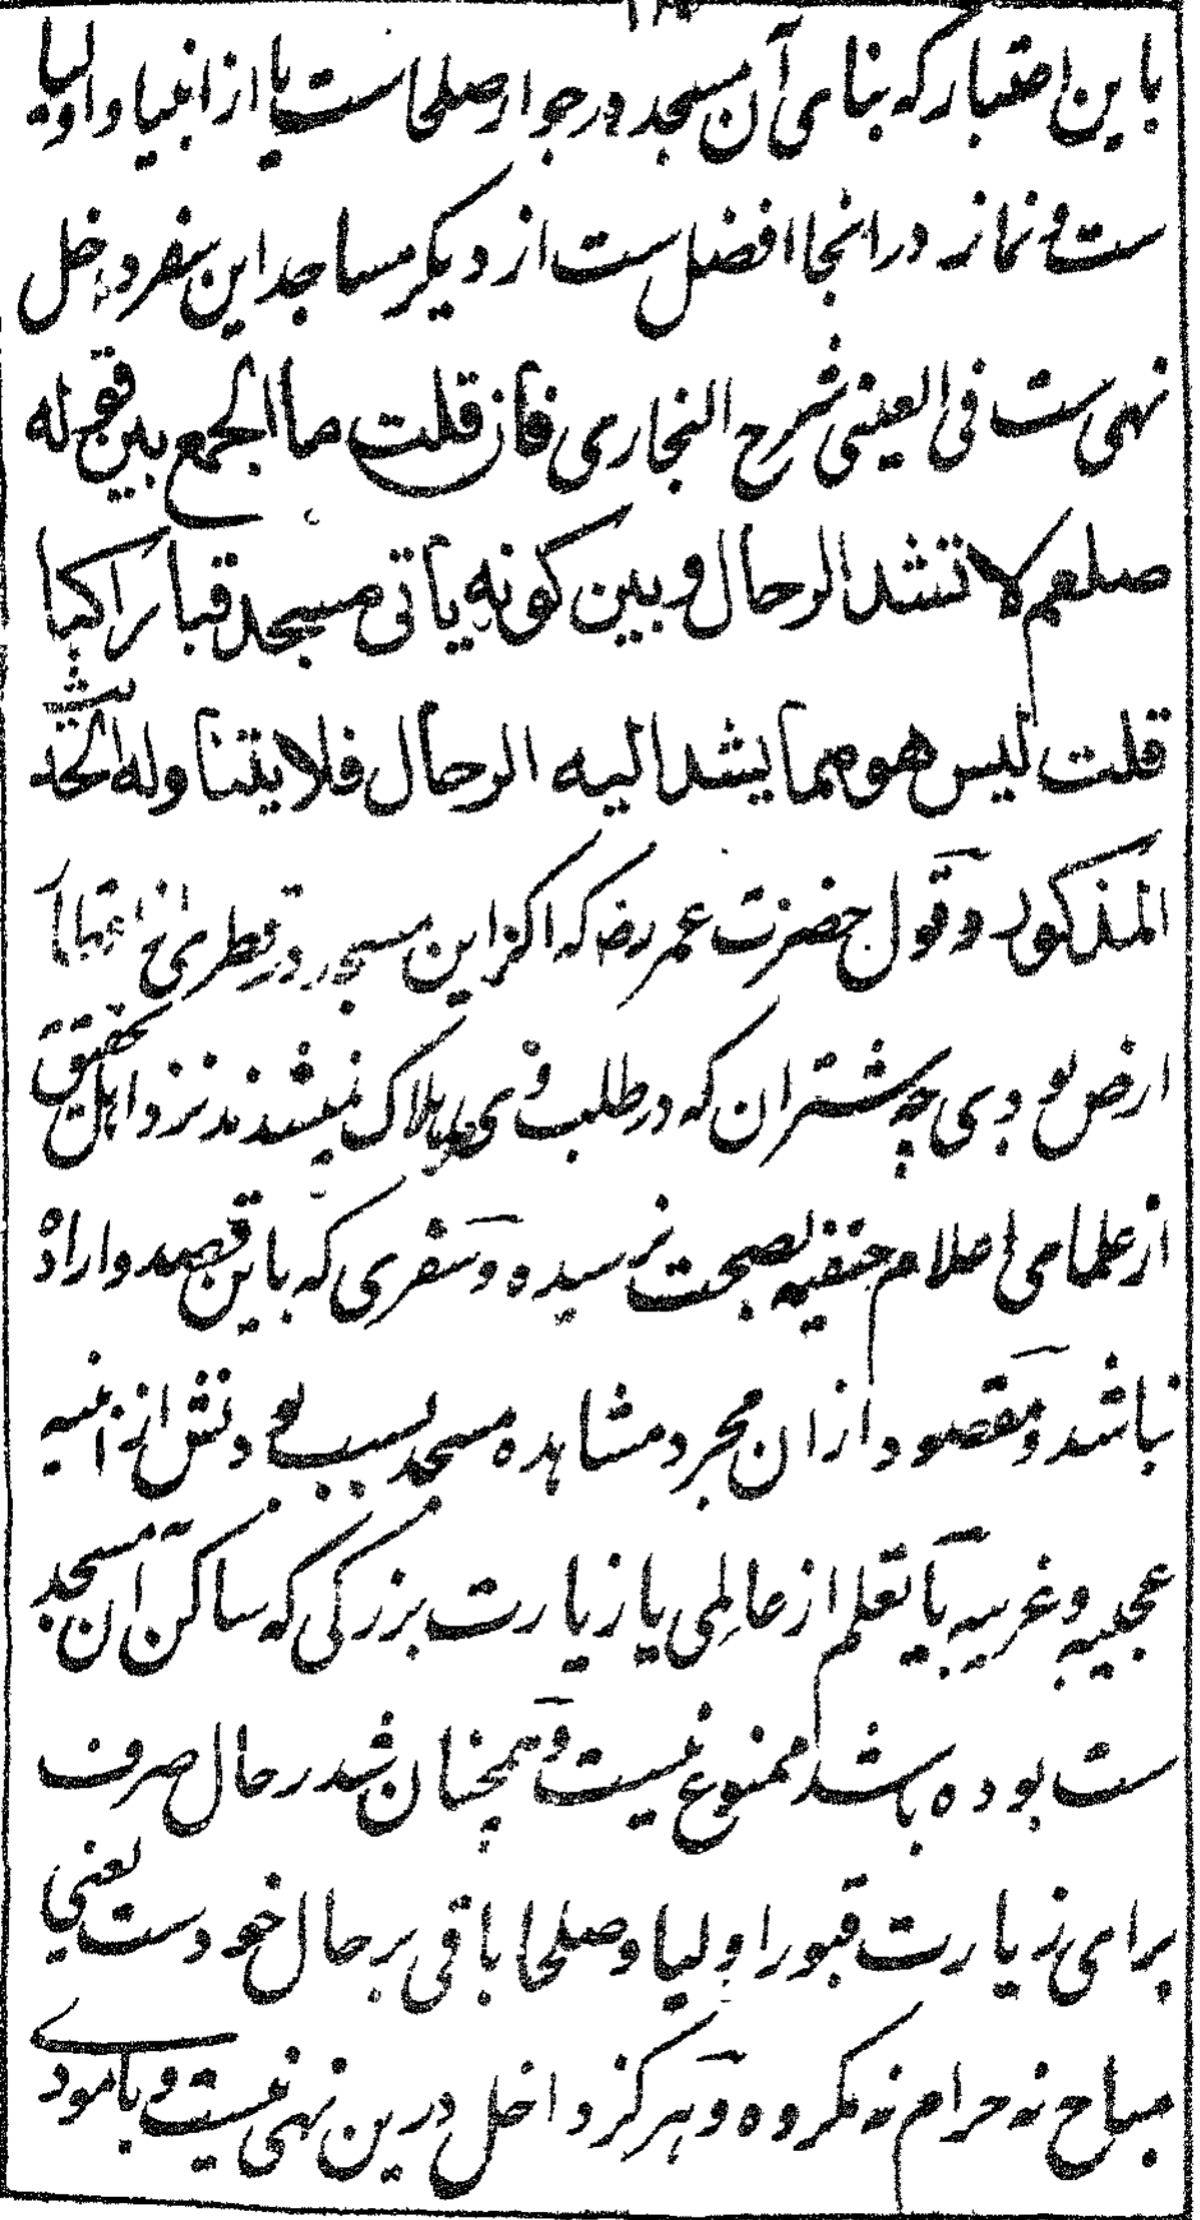 باین اعتبار که بنای آن مسجد در جوار صلحاست یا از انبیا و اولیا
ست و نماز در انجا افضل ست از دیگر مساجد این سفر داخل
نهی ست فی العینی شرح البخاری فان قلت ما الجمع بین قوله
صلعم لا تشد الرحال و بین کونه یأتی مسجد قبا راکبا
قلت لیس هو مما یشد الیه الرحال فلا یتناوله الحدیث
المذکور و قول حضرت عمر رضه که اگر این مسجد در قطری از اقطار
ارض بودی چه شتران که در طلب وی هلاک نمیشدند نزد اهل تحقیق
از علمای اعلام حنفیه بصحت نرسیده و سفری که باین قصد و اراده
نباشد و مقصود ازان مجرد مشاهده مسجد بسبب بودنش از ابنیه
عجیبه و غریبه یا تعلم از عالمی یا زیارت بزرگی که ساکن آن مسجد
ست بوده باشد ممنوع نیست و همچنان شد رحال صرف
برای زیارت قبور اولیا و صلحا باقی بر حال خودست یعنی
مباح نه حرام نه مکروه و هرگز داخل درین نهی نیست و